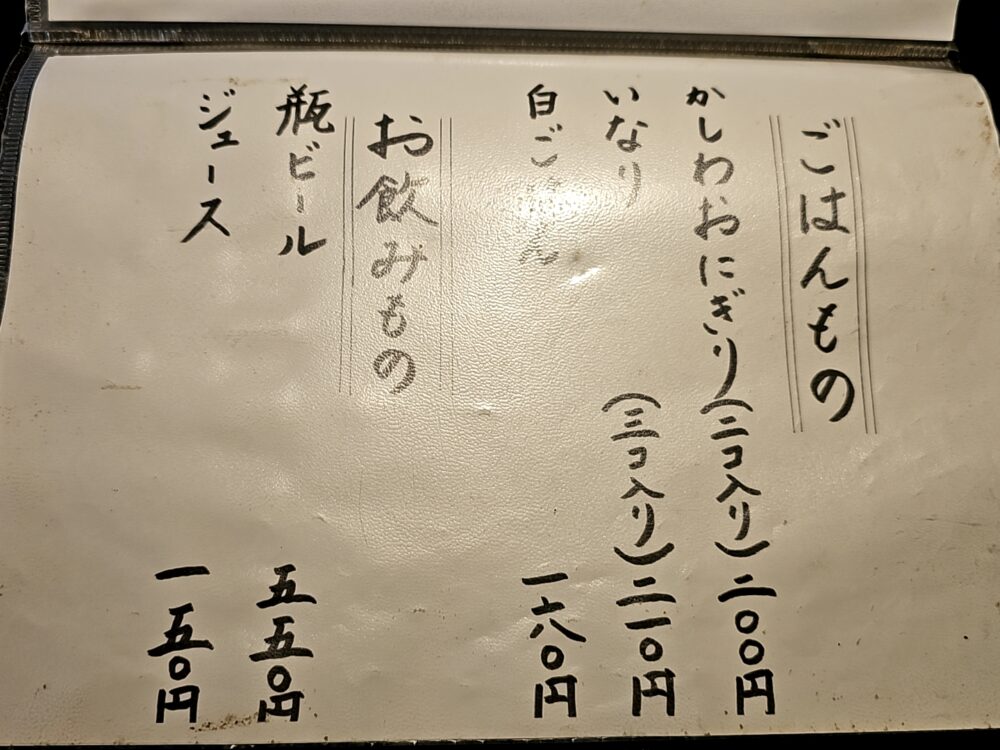 ごはんもの
かしわおにぎり(二コ入り)二〇〇円
いなり(三コ入り)二一〇円
白ごはん 一六〇円
お飲みもの
瓶ビール 五五〇円
ジュース 一五〇円